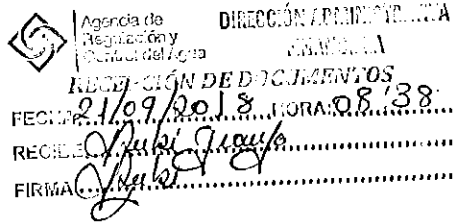 Agencia de
Regulación y
Control del Agua
DIRECCIÓN ADMINISTRATIVA
FINANCIERA
RECEPCIÓN DE DOCUMENTOS
FECHA: 21/09/2018 HORA: 08:38
RECIBE:
FIRMA